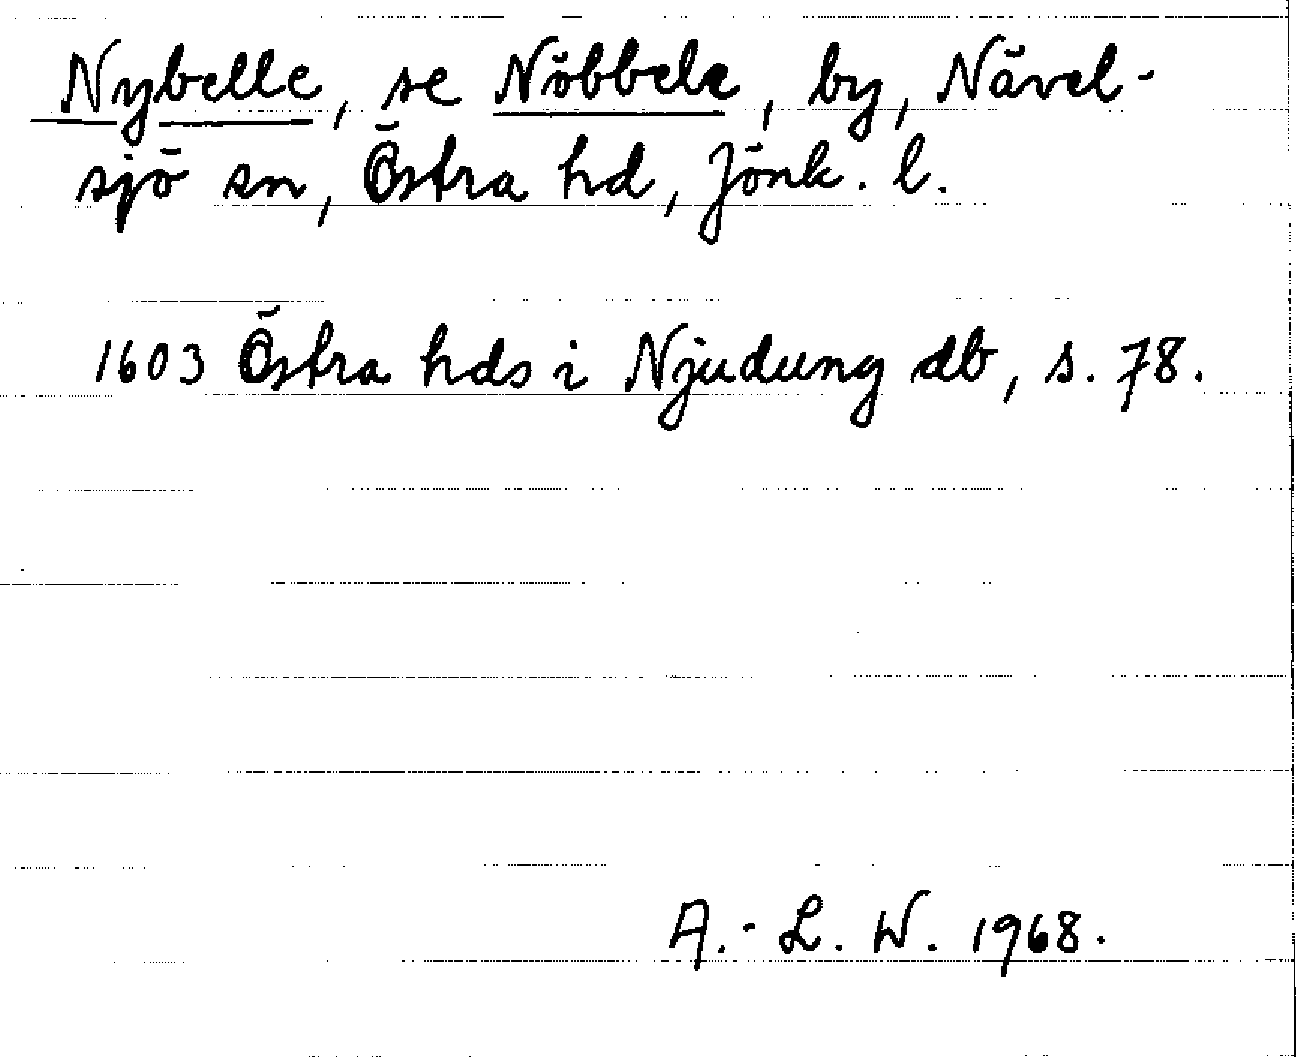 Nybelle, se Nöbbele, by, Nävel-
sjö sn, Östra hd, Jönk. l.
1603 Östra hds i Njudung db, s. 78.
A.-L. W. 1968.